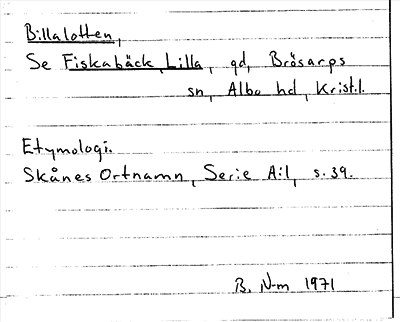 Billalotten,
Se Fiskabäck, Lilla, gd, Brösarps
sn, Albo hd, Krist.l.
Etymologi.
Skånes Ortnamn, Serie A:1, s. 39.
B. N-m 1971